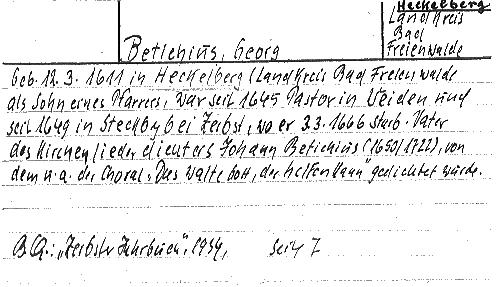 Heckelberg
Landkreis
Bad
Freienwalde
Betichius, Georg
Geb. 12. 3. 1611 in Heckelberg (Landkreis Bad Freienwalde
als Sohn eines Pfarrers, war seit 1645 Pastor in Weiden und
seit 1649 in Steckby bei Zerbst, wo er 3.3.1666 starb. Vater
des Kirchenliederdichters Johann Betichius (1650/1722), von
dem u.a. der Choral „Das walte Gott, der helfen kann" gedichtet wurde.
B.Q.: „Zerbster Jahrbuch", 1934, Seite 7